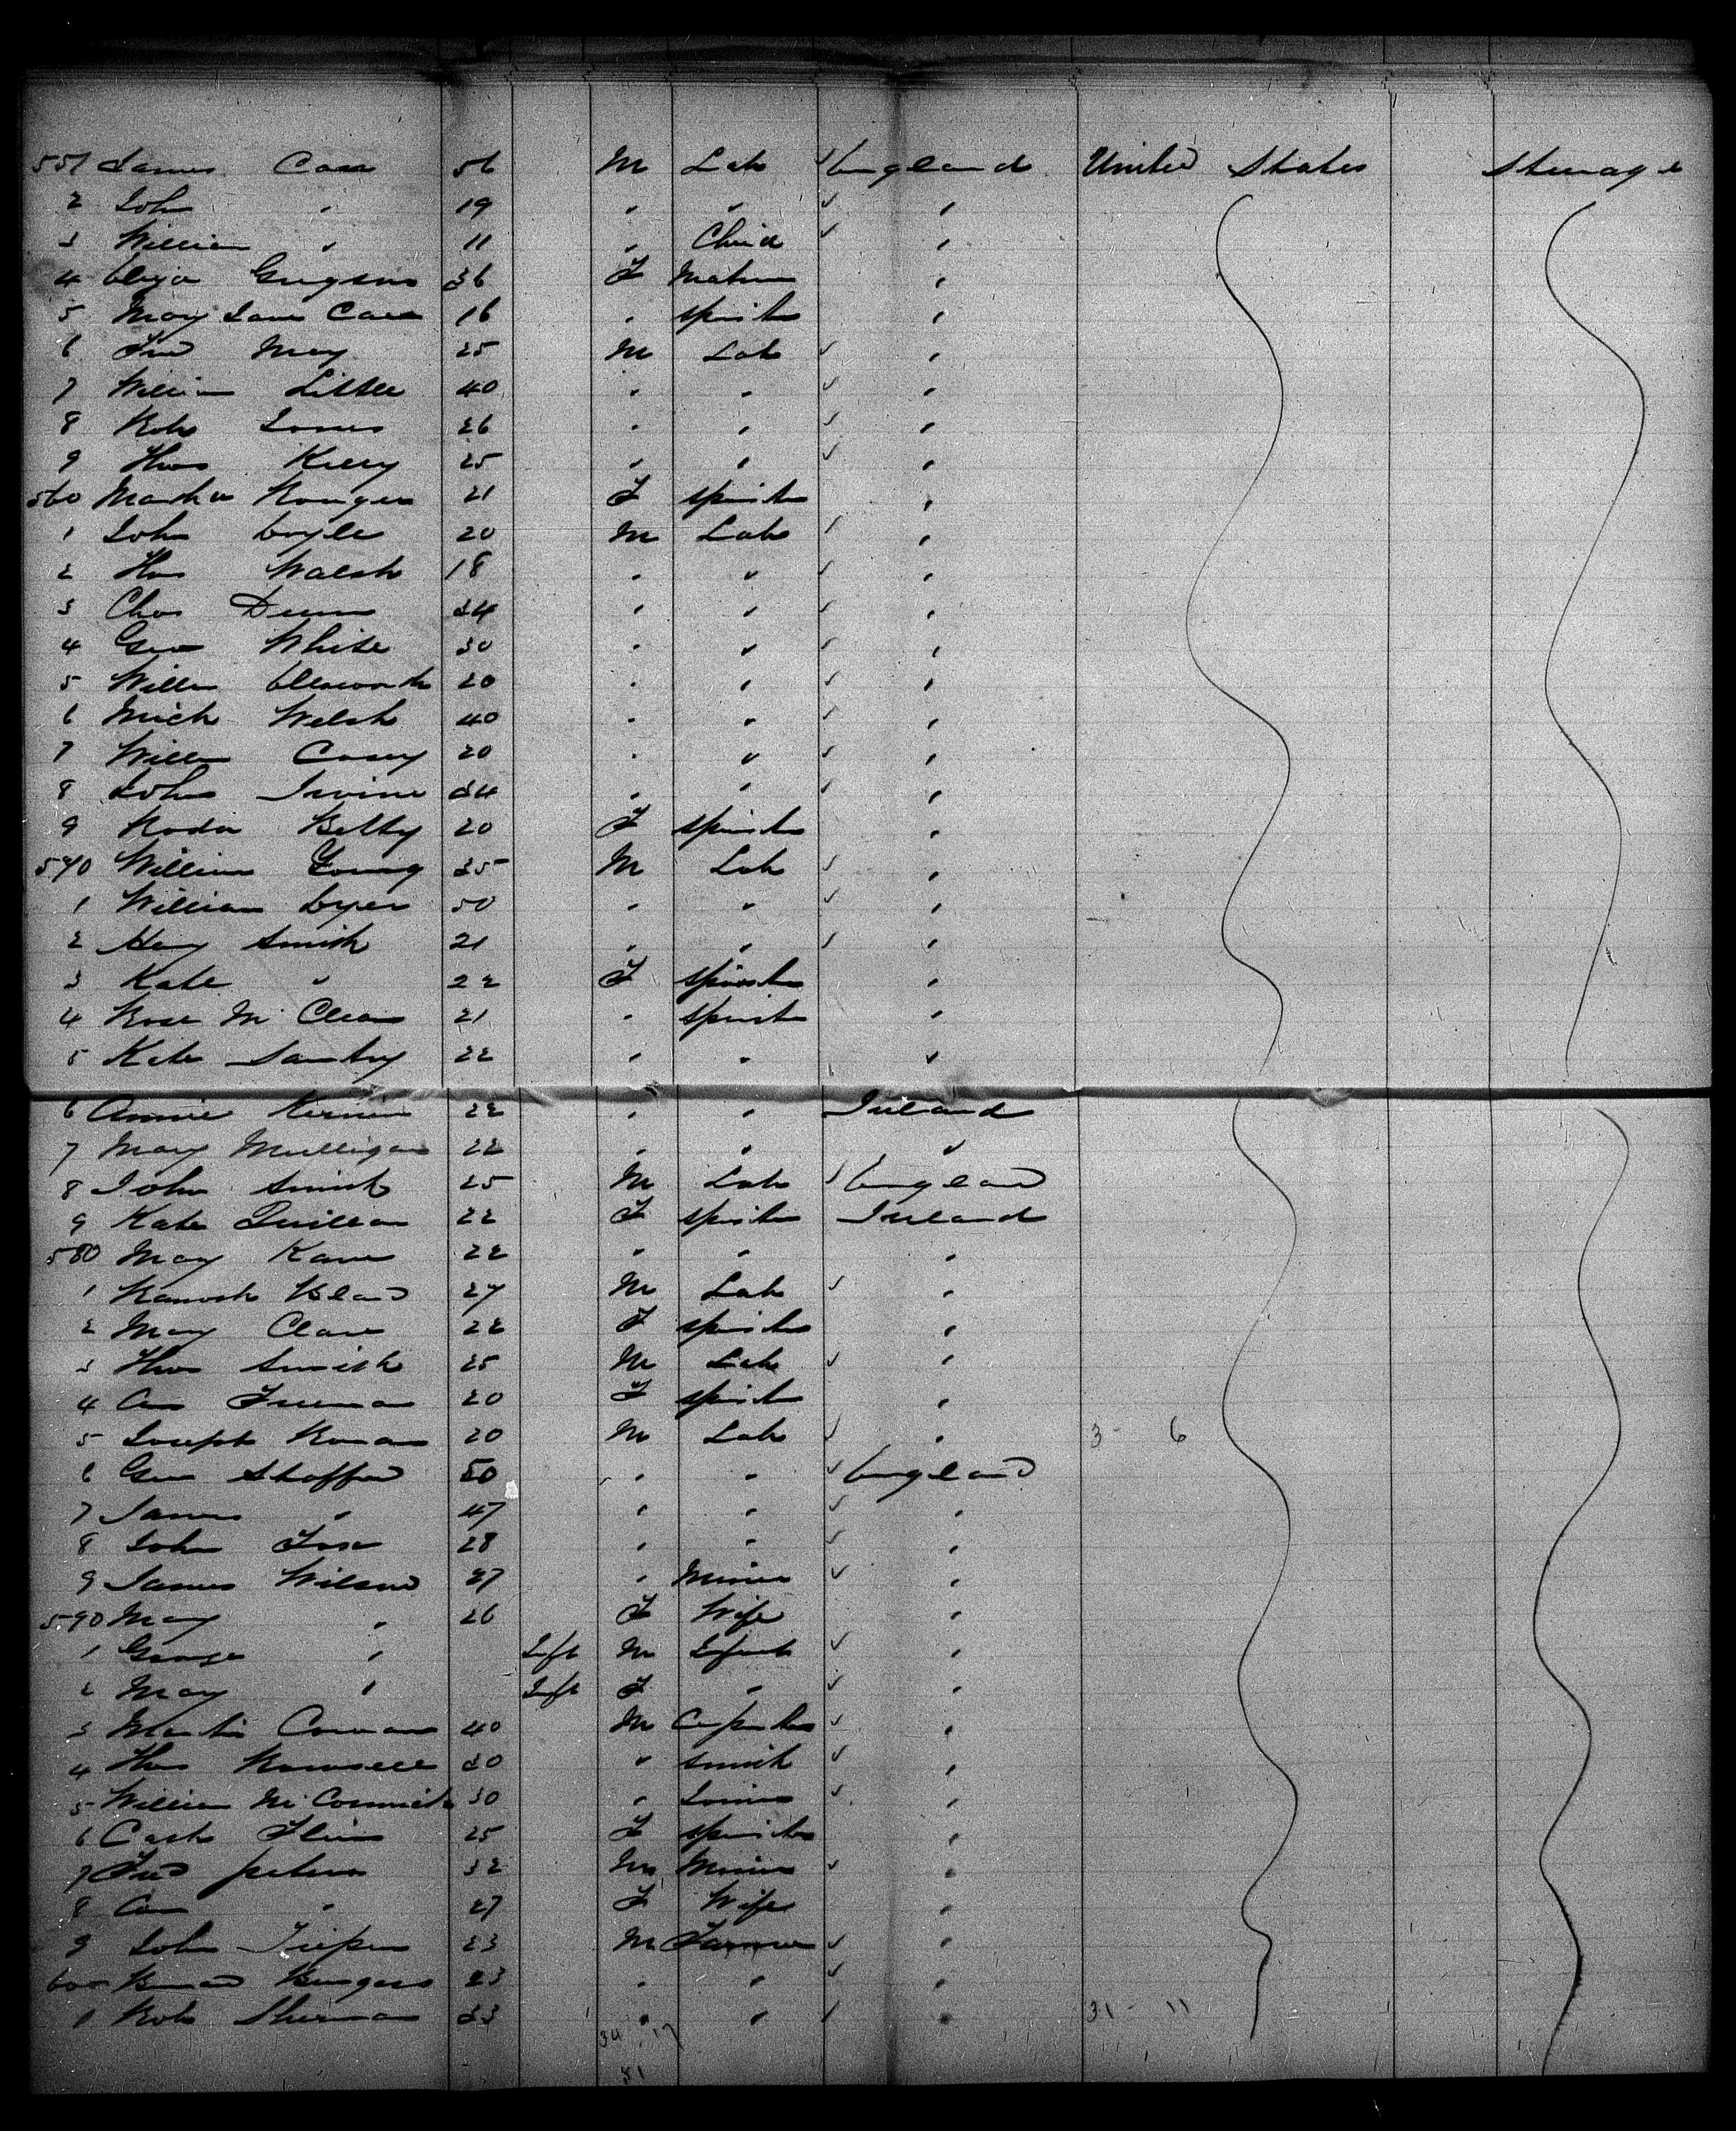 551 James Cass 56 M Lab ✓ England United States Steerage
2 John " 19 " " ✓ "
3 William " 11 " Child ✓ "
4 Eliza Gregson 36 F Matron "
5 Mary Jane Cass 16 " spinster "
6 Fred May 25 M Lab ✓ "
7 William Little 40 " " ✓ "
8 Robt Jones 26 " " ✓ "
9 Thos Kelly 25 " " ✓ "
560 Martha 21 F spinster "
1 John Coyle 20 M Lab ✓ "
2 Thos Walsh 18 " " ✓ "
3 Chas Dunn 34 " " ✓ "
4 Geo White 30 " " ✓ "
5 Willm Ellsworth 20 " " ✓ "
6 Mich Welsh 40 " " ✓ "
7 Willm Casey 20 " " ✓ "
8 John Irvine 34 " " ✓ "
9 Betty 20 F spinster "
570 William Young 35 M Lab ✓ "
1 William 50 " " ✓ "
2 Hey Smith 21 " " ✓ "
3 Kate " 22 F spinster "
4 Rose Mc Clean 21 " spinster "
5 Kate 22 " " "
6 Annie Kernin 22 " " Ireland
7 Mary Mulligan 22 " " "
8 John Smith 25 M Lab ✓ England
9 Kate Quillan 22 F spinster Ireland
580 Mary Kane 22 " " "
1 27 M Lab ✓ "
2 Mary Clare 22 F spinster "
3 Thos Smith 25 M Lab ✓ "
4 Ann Freeman 20 F spinster "
5 Joseph 20 M Lab ✓ " 3 - 6
6 Geo Shaffer 50 " " ✓ England
7 James " 47 " " ✓ "
8 John Fox 28 " " ✓ "
9 James Wilson 27 " Miner ✓ "
590 Mary " 26 F Wife "
1 George " Inft M Infant ✓ "
2 Mary " Inft F " ✓ "
3 Martin 40 M Carpenter ✓ "
4 Thos 30 " Smith ✓ "
5 William McCormick 30 " Joiner ✓ "
6 Cath Flinn 25 F spinster "
7 Fred Peters 32 M Miner ✓ "
8 Ann " 27 F Wife "
9 John 23 M Farmer ✓ "
600 Burgess 23 " " ✓ "
1 Robt Sherman 33 " " ✓ " 31 - 11
34 17
51